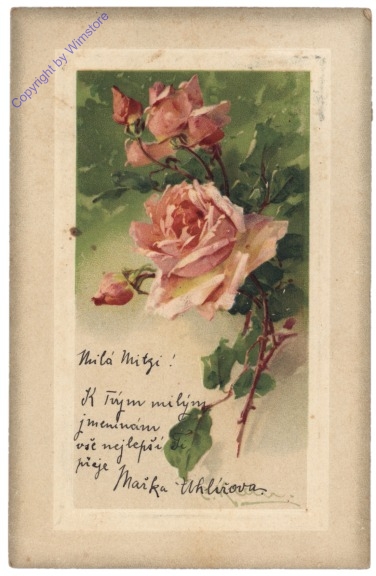 Copyright by Wimstore
Milá Mitzi!
K Tvým milým
jmeninám
vše nejlepší Ti
přeje
Mařka Uhlířova.